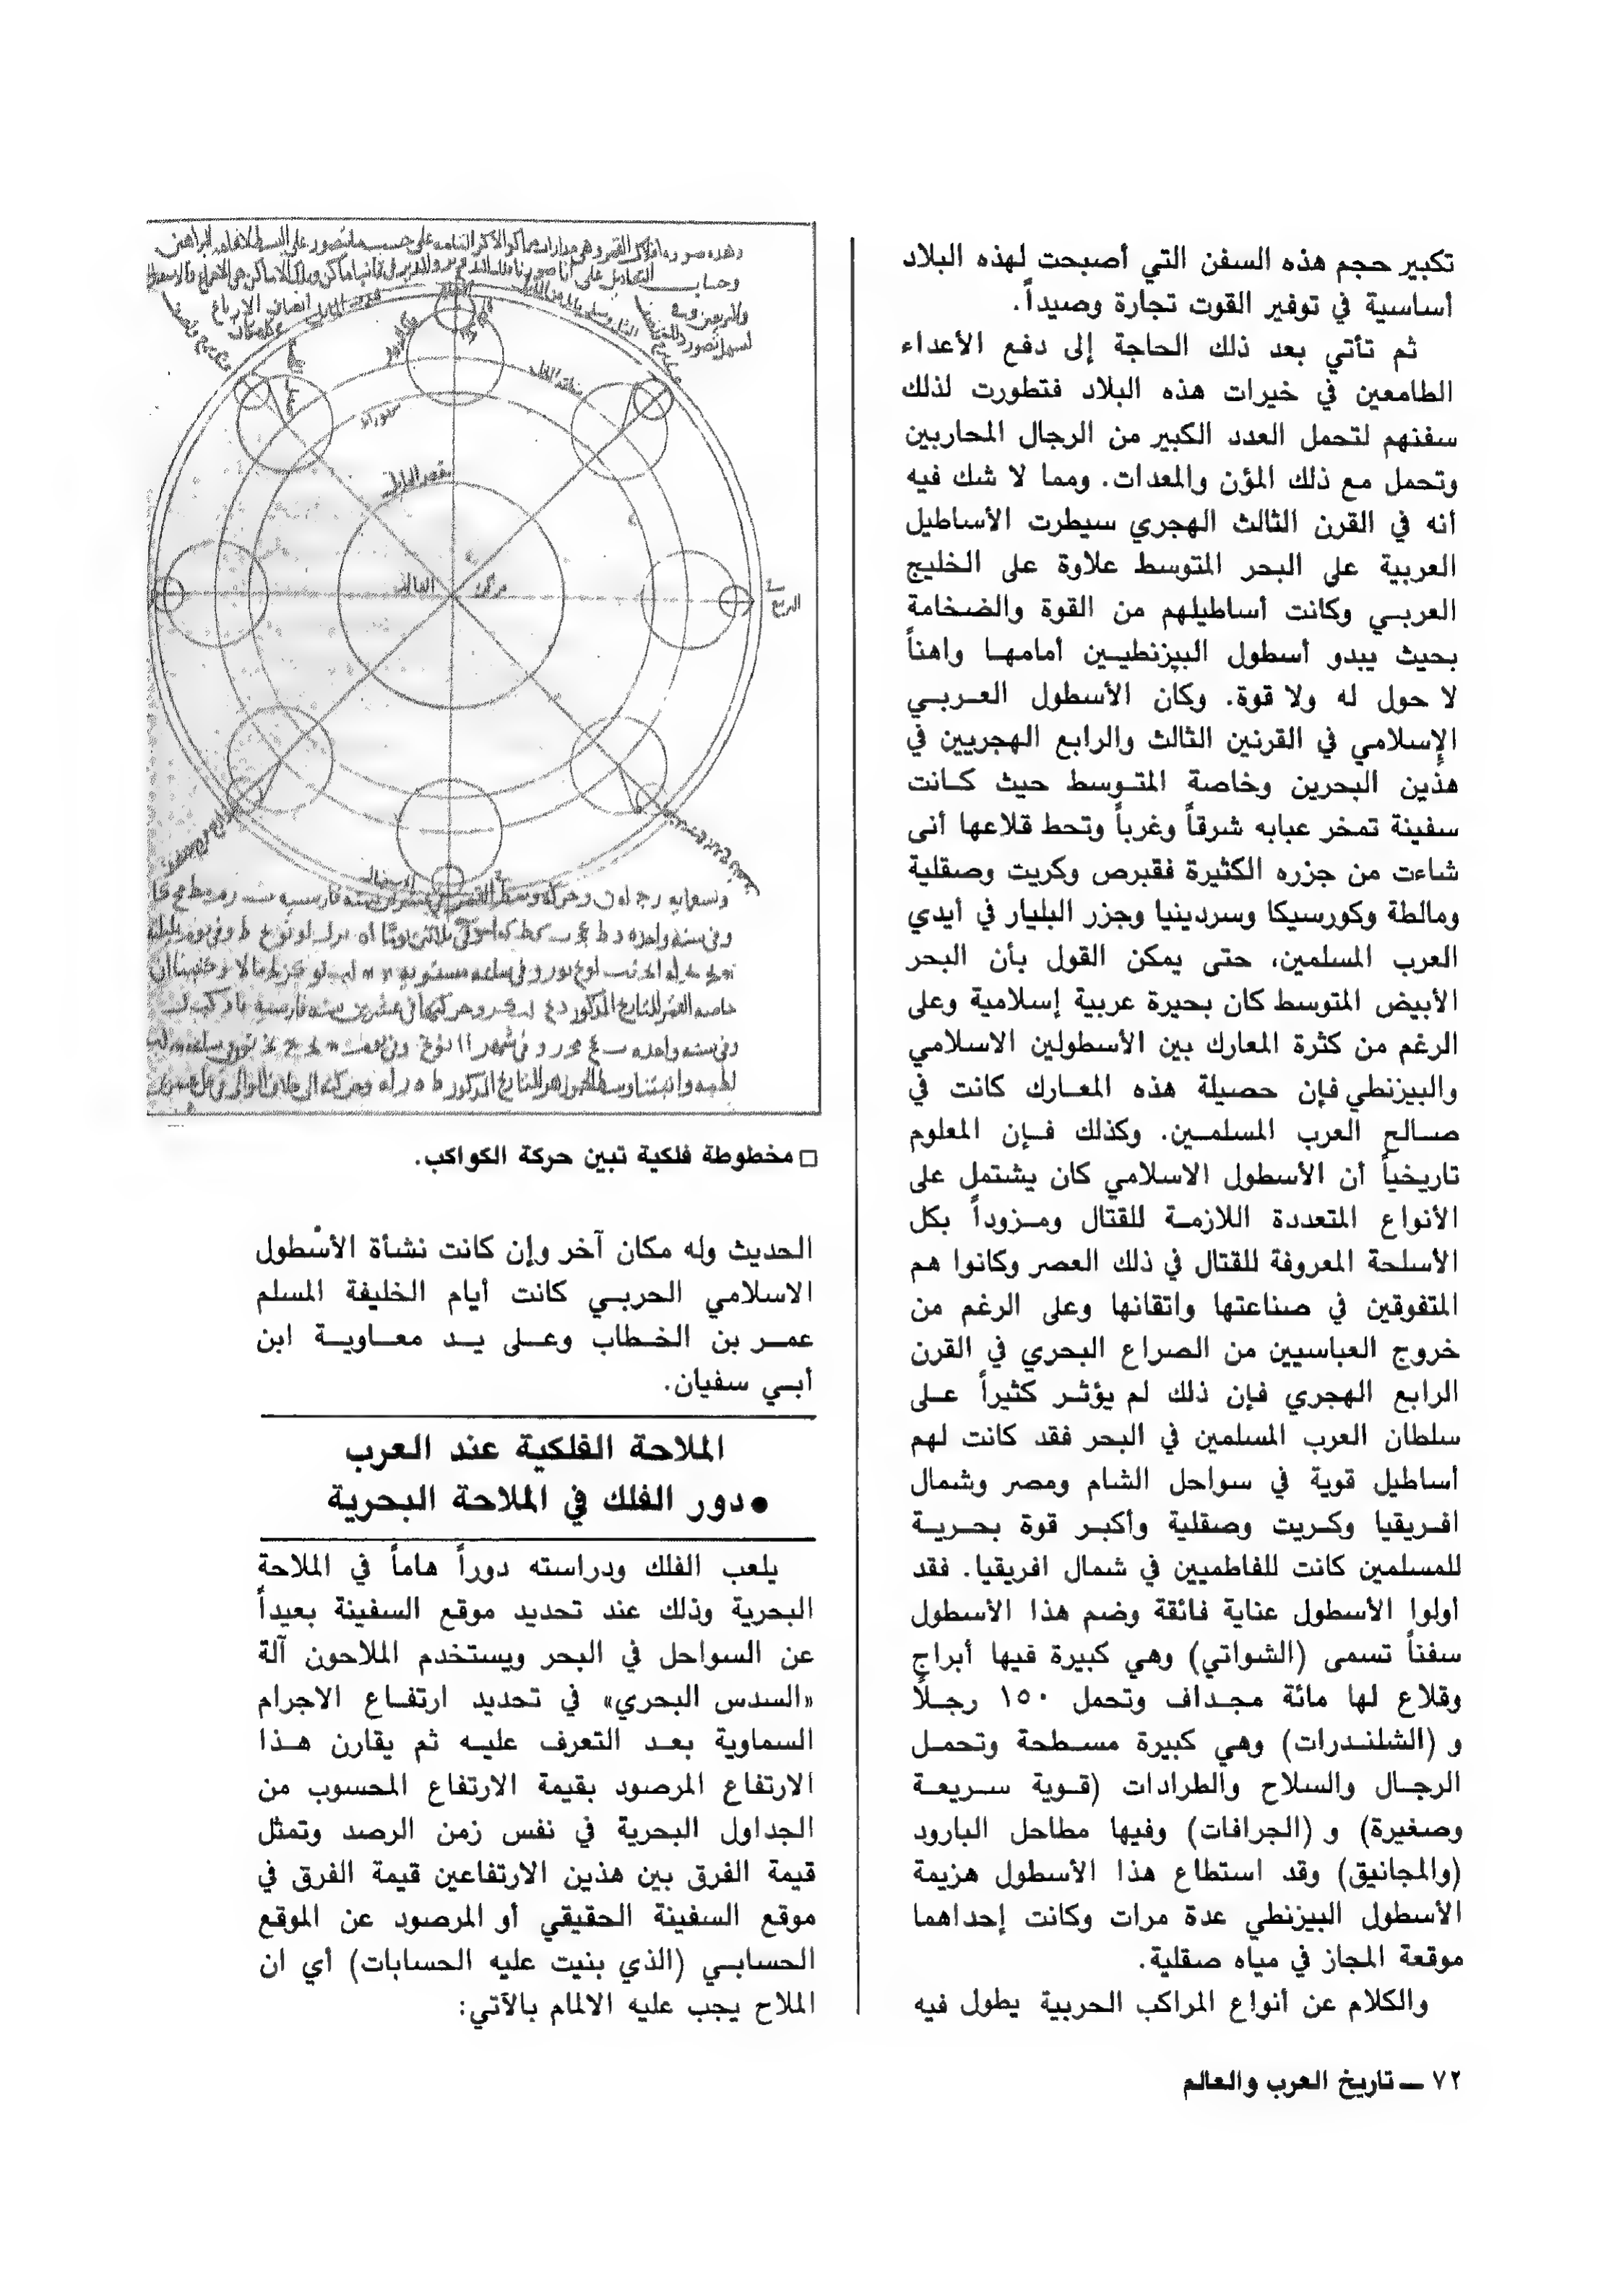 تكبير حجم هذه السفن التي أصبحت لهذه البلاد
أساسية في توفير القوت تجارة وصيداً.
ثم تأتي بعد ذلك الحاجة إلى دفع الأعداء
الطامعين في خيرات هذه البلاد فتطورت لذلك
سفنهم لتحمل العدد الكبير من الرجال المحاربين
وتحمل مع ذلك المؤن والمعدات. ومما لا شك فيه
أنه في القرن الثالث الهجري سيطرت الأساطيل
العربية على البحر المتوسط علاوة على الخليج
العربي وكانت أساطيلهم من القوة والضخامة
بحيث يبدو أسطول البيزنطيين أمامها واهناً
لا حول له ولا قوة. وكان الأسطول العربي
الإسلامي في القرنين الثالث والرابع الهجريين في
هذين البحرين وخاصة المتوسط حيث كانت
سفينة تمخر عبابه شرقاً وغرباً وتحط قلاعها أنى
شاءت من جزره الكثيرة فقبرص وكريت وصقلية
ومالطة وكورسيكا وسردينيا وجزر البليار في أيدي
العرب المسلمين، حتى يمكن القول بأن البحر
الأبيض المتوسط كان بحيرة عربية إسلامية وعلى
الرغم من كثرة المعارك بين الأسطولين الاسلامي
والبيزنطي فإن حصيلة هذه المعارك كانت في
صالح العرب المسلمين. وكذلك فإن المعلوم
تاريخياً أن الأسطول الاسلامي كان يشتمل على
الأنواع المتعددة اللازمة للقتال ومزوداً بكل
الأسلحة المعروفة للقتال في ذلك العصر وكانوا هم
المتفوقين في صناعتها واتقانها وعلى الرغم من
خروج العباسيين من الصراع البحري في القرن
الرابع الهجري فإن ذلك لم يؤثر كثيراً على
سلطان العرب المسلمين في البحر فقد كانت لهم
أساطيل قوية في سواحل الشام ومصر وشمال
افريقيا وكريت وصقلية وأكبر قوة بحرية
للمسلمين كانت للفاطميين في شمال افريقيا. فقد
أولوا الأسطول عناية فائقة وضم هذا الأسطول
سفناً تسمى (الشواتي) وهي كبيرة فيها أبراج
وقلاع لها مائة مجداف وتحمل ١٥٠ رجلاً
و (الشلندرات) وهي كبيرة مسطحة وتحمل
الرجال والسلاح والطرادات (قوية سريعة
وصغيرة) و (الجرافات) وفيها مطاحل البارود
(والمجانيق) وقد استطاع هذا الأسطول هزيمة
الأسطول البيزنطي عدة مرات وكانت إحداهما
موقعة المجاز في مياه صقلية.
والكلام عن أنواع المراكب الحربية يطول فيه
□ مخطوطة فلكية تبين حركة الكواكب.
الحديث وله مكان آخر وإن كانت نشأة الأسطول
الاسلامي الحربي كانت أيام الخليفة المسلم
عمر بن الخطاب وعلى يد معاوية ابن
أبي سفيان.
الملاحة الفلكية عند العرب
● دور الفلك في الملاحة البحرية
يلعب الفلك ودراسته دوراً هاماً في الملاحة
البحرية وذلك عند تحديد موقع السفينة بعيداً
عن السواحل في البحر ويستخدم الملاحون آلة
«السدس البحري» في تحديد ارتفاع الاجرام
السماوية بعد التعرف عليه ثم يقارن هذا
الارتفاع المرصود بقيمة الارتفاع المحسوب من
الجداول البحرية في نفس زمن الرصد وتمثل
قيمة الفرق بين هذين الارتفاعين قيمة الفرق في
موقع السفينة الحقيقي أو المرصود عن الموقع
الحسابي (الذي بنيت عليه الحسابات) أي ان
الملاح يجب عليه الالمام بالآتي:
٧٢ — تاريخ العرب والعالم